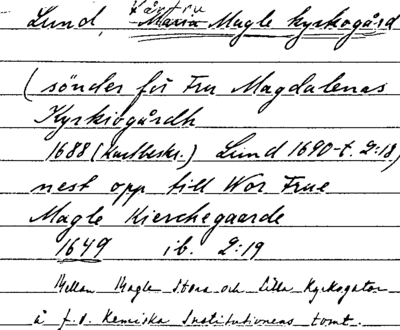 Lund, Vårfru Maria Magle kyrkogård
(sönder för Fru Magdalenas
Kyrkiogårdh
1688 (Kartbeskr.) Lund 1690-t. 2:18)
nest opp till Wor Frue
Magle Kierchegaarde
1649 ib. 2:19
Mellan Magle Stora och Lilla Kyrkogatan
å f.d. Kemiska Institutionens tomt.